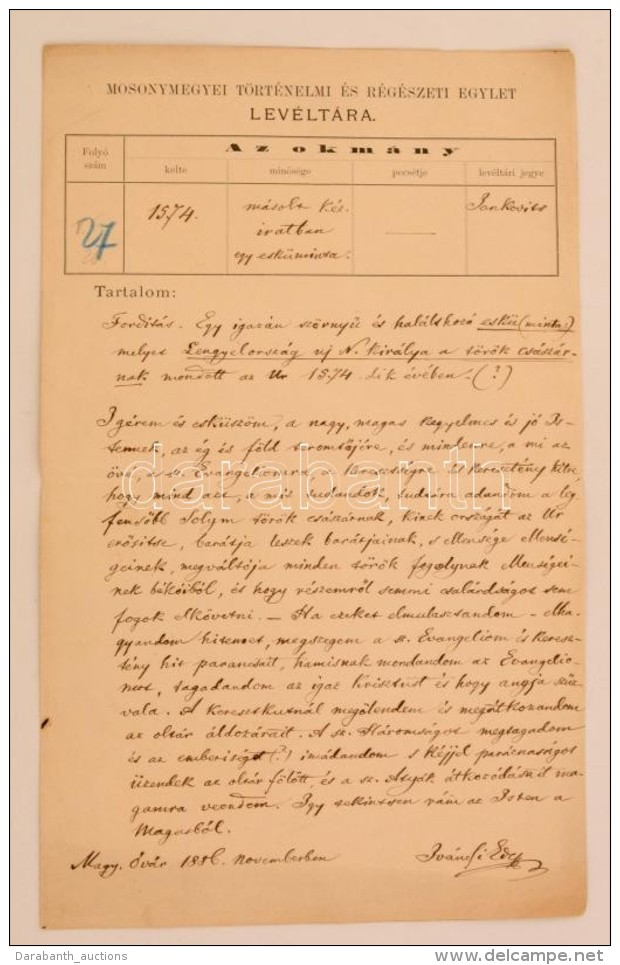 MOSONYMEGYEI TÖRTÉNELMI ÉS RÉGÉSZETI EGYLET
LEVÉLTÁRA.
Folyó szám
Az okmány
kelte
minősége
pecsétje
levéltári jegye
27
1574.
másolt kéz-
iratban
egy eskűminta.
Jankovits
Tartalom:
Fordítás. Egy igazán szörnyű és halálthozó eskü (minta:)
melyet Lengyelország uj N. királya a török császár-
nak mondott az Ur 1574. dik évében – (?)
Igérem és esküszöm, a nagy, magas kegyelmes és jó Is-
tennek, az ég és föld teremtőjére, és mindenre, a mi az
övé, a sz. Evangeliomra, a keresztségre és keresztény hitre,
hogy mind azt, a mit tudandok, tudtára adandom a leg
fensőbb Solym török császárnak, kinek országát az Ur
erősitse, barátja leszek barátjainak, s ellensége ellensé-
geinek, megváltója minden török fogolynak ellenségei-
nek békóiból, és hogy részemről semmi csalárdságot sem
fogok elkövetni. – Ha ezeket elmulasztandom – elha-
gyandom hitemet, megszegem a sz. Evangeliom és keresz-
tény hit parancsait, hamisnak mondandom az Evangelio-
mot, tagadandom az igaz Krisztust és hogy anyja szűz
vala. A keresztkutnál megölendem és megátkozandom
az oltár áldozárait. A sz. Háromságot megtagadom
és az emberiséget (?) imádandom s kéjjel paráznaságot
űzendek az oltár fölött, és a sz. Atyák átkozódásait ma-
gamra veendem. Igy tekintsen rám az Isten a
Magasból.
Magy. Óvár 1886. novemberben
Ivánfi Ede
darabanth
Darabanth_auctions
www.delcampe.net